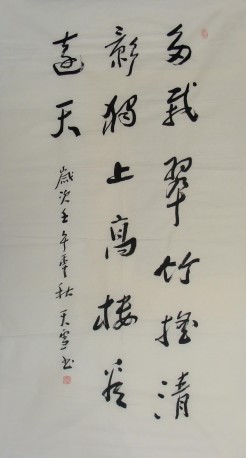 多栽翠竹摇清
影獨上高楼看
遠天
歲次壬午季秋天雪书